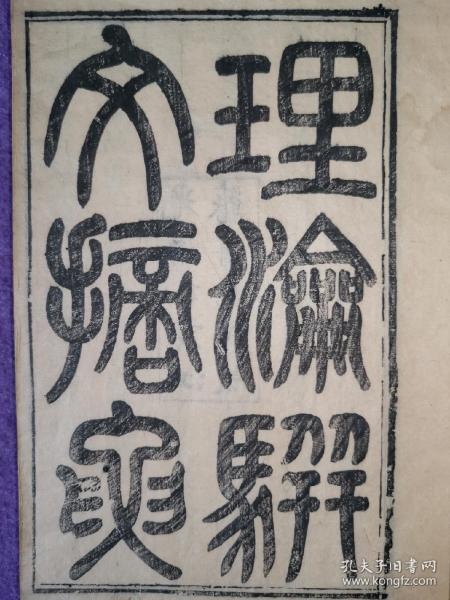 理瀹駢
文摘要
孔夫子旧书网
www.kongfz.com